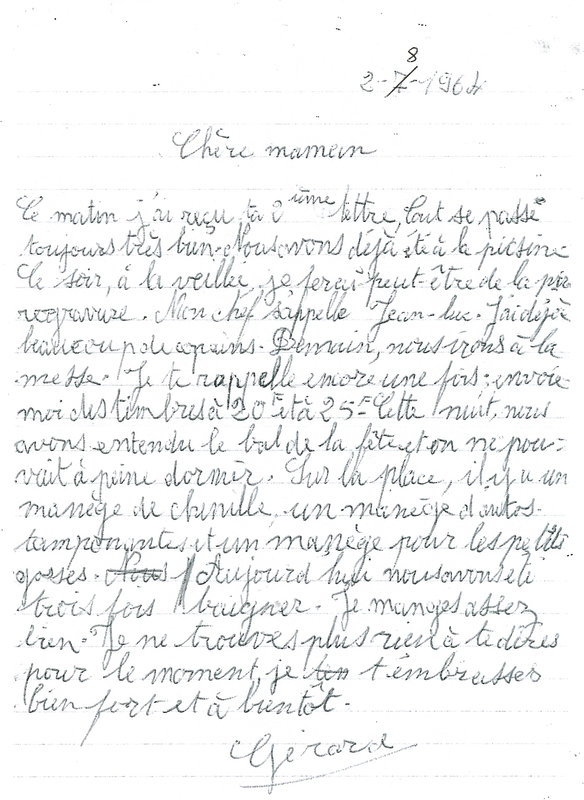 2-8-1964
Chère maman
Ce matin j'ai reçu ta 2ième lettre, tout se passe
toujours très bien. Nous avons déjà été à la picsine
Ce soir, à la veillée, je ferai peut-être de la py
rogravure. Mon chef s'appelle Jean-luc. J'ai déjà
beaucoup de copains. Demain, nous irons à la
messe. Je te rappelle encore une fois: envoie
moi des timbres à 20F et à 25F Cette nuit, nous
avons entendu le bal de la fête et on ne pou-
vait à peine dormir. Sur la place, il y a un
manège de chenille, un manège d'autos
tamponantes et un manège pour les petits
gosses. Aujourd'hui nous avons été
trois fois baigner. Je manges assez
bien. Je ne trouves plus rien à te dires
pour le moment, je t'embrasses
bien fort et à bientôt.
Gérard